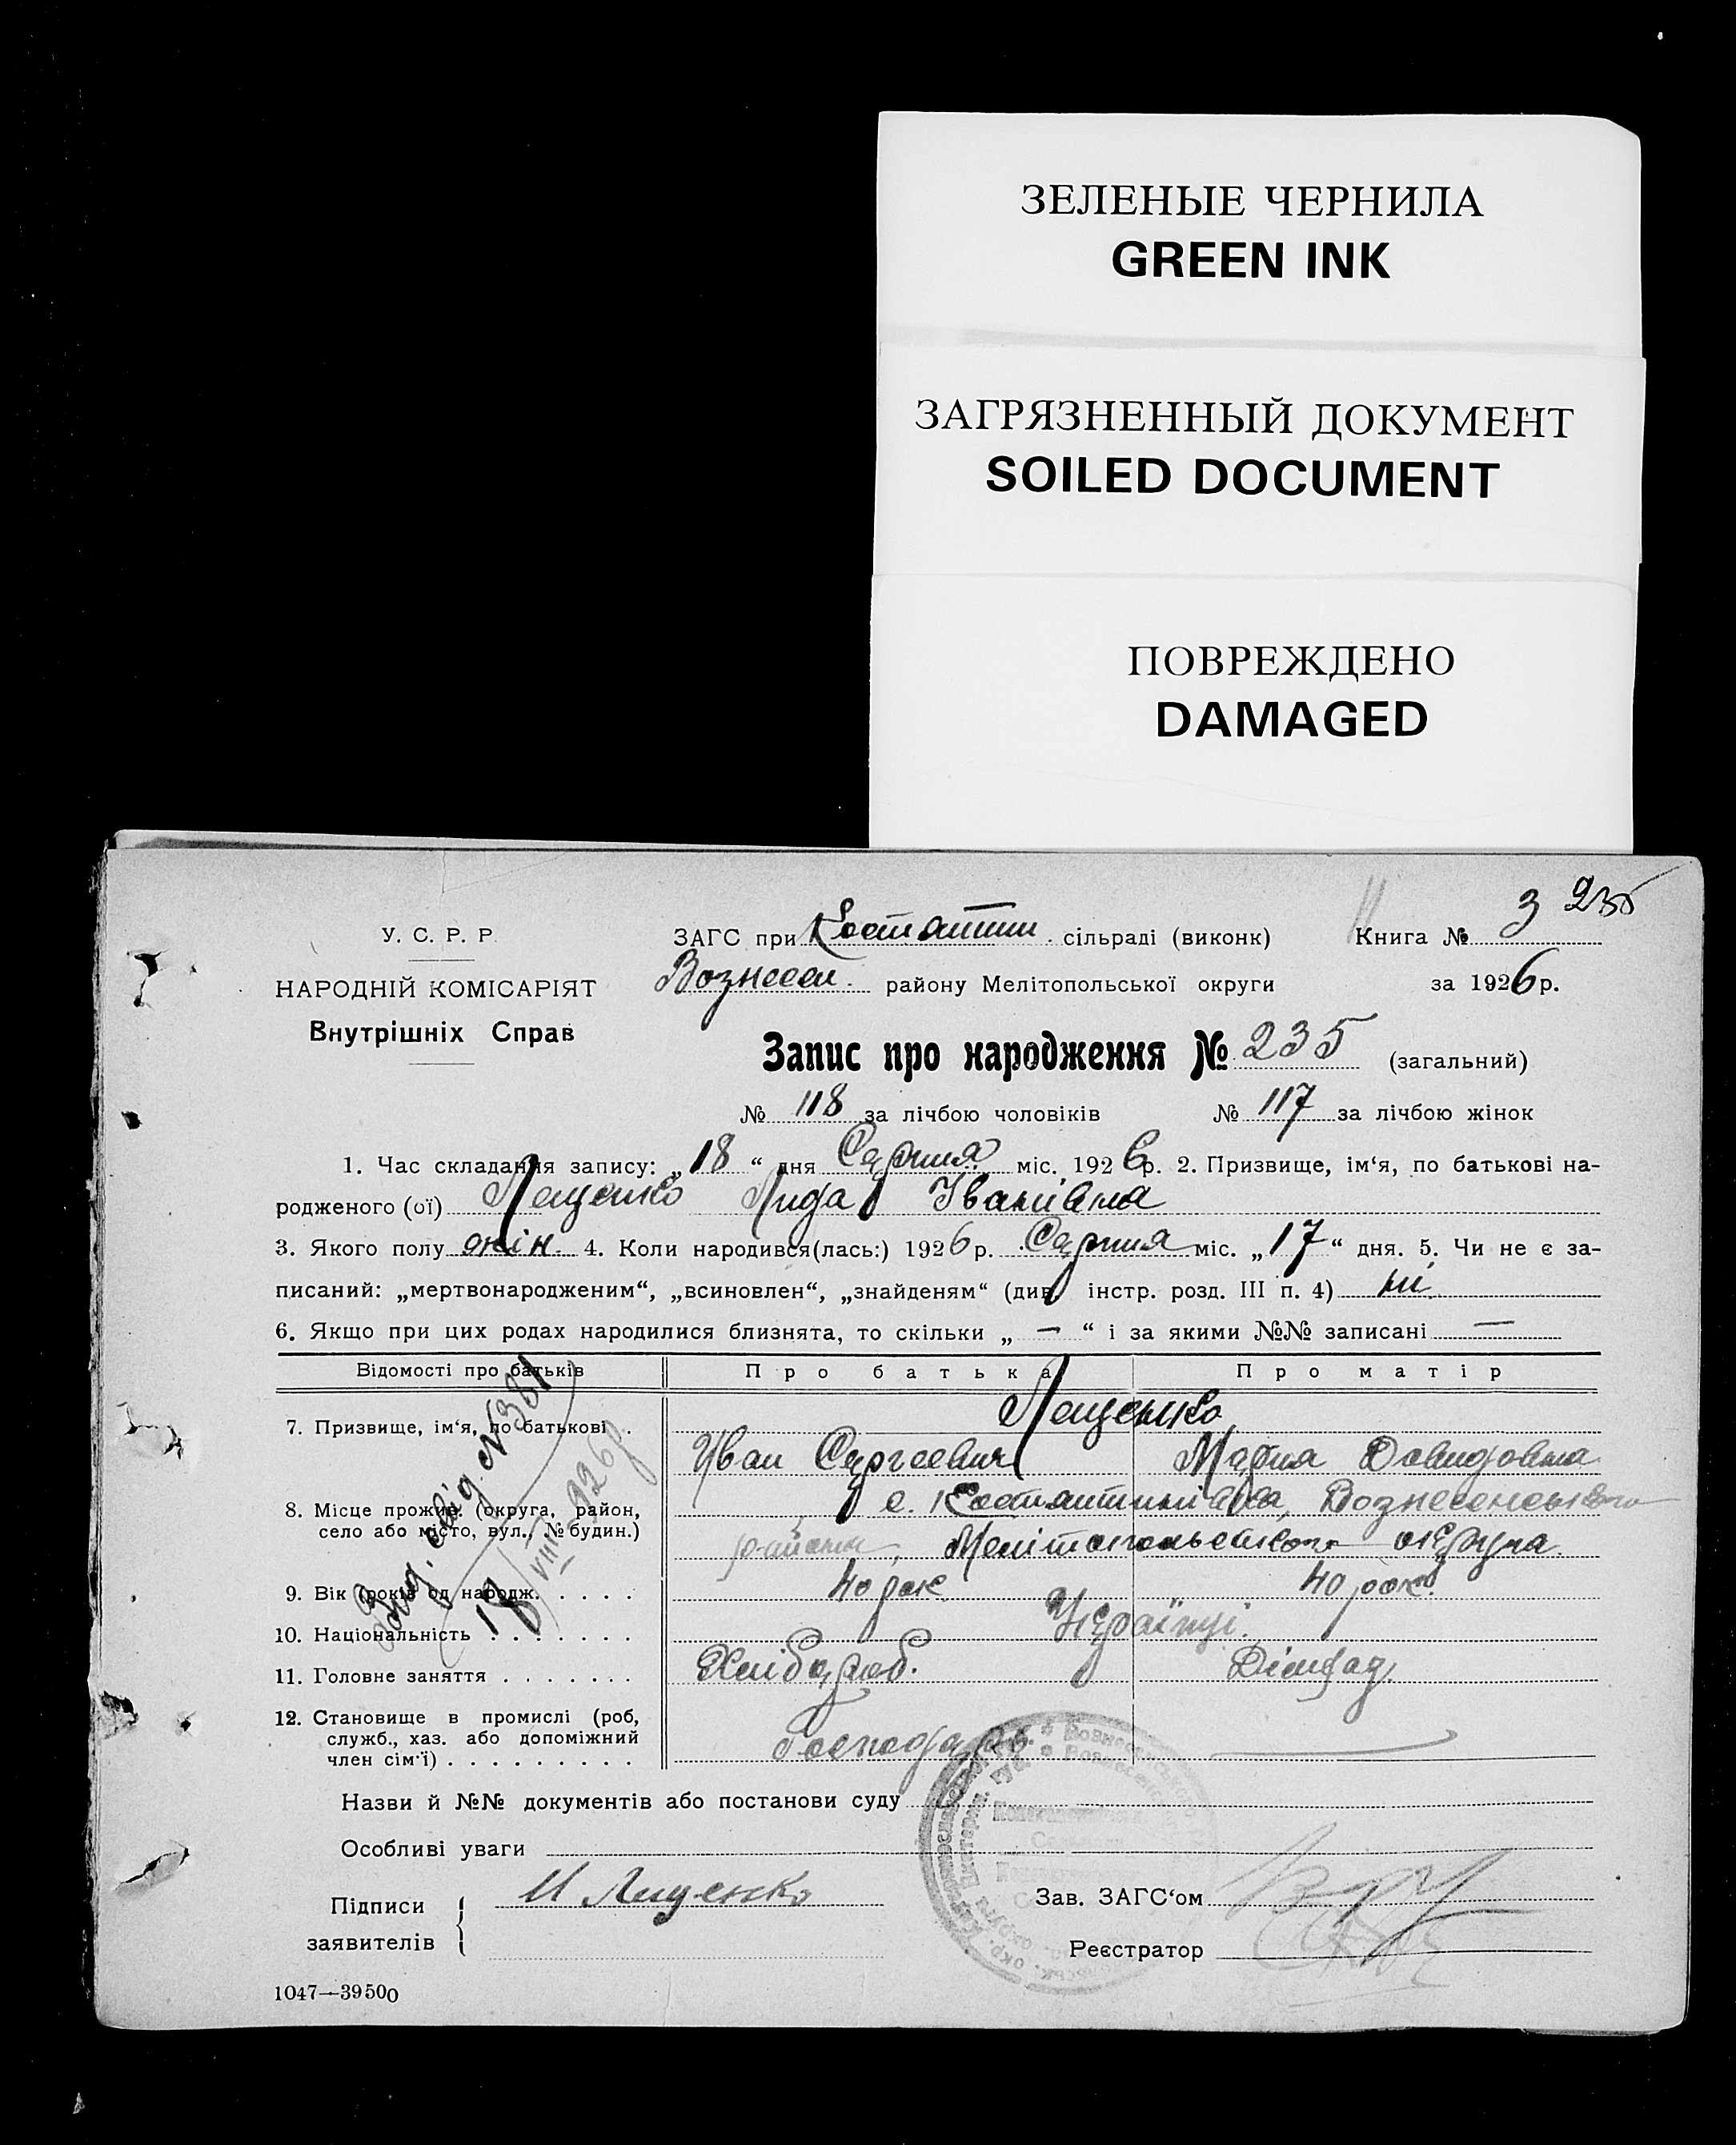 ЗЕЛЕНЫЕ ЧЕРНИЛА
GREEN INK
ЗАГРЯЗНЕННЫЙ ДОКУМЕНТ
SOILED DOCUMENT
ПОВРЕЖДЕНО
DAMAGED
3 235
У. С. Р. Р.
ЗАГС при Костянтин. сільраді (виконк)
Книга №
НАРОДНІЙ КОМІСАРІЯТ
Вознесен. району Мелітопольської округи
за 1926 р.
Внутрішніх Справ
Запис про народження № 235 (загальний)
№ 118 за лічбою чоловіків № 117 за лічбою жінок
1. Час складання запису: „18“ дня Серпня міс. 1926 р. 2. Призвище, ім‘я, по батькові на-
родженого (ої) Лещенко Лида Іванівна
3. Якого полу жін. 4. Коли народився(лась:) 1926 р. Серпня міс. „17“ дня. 5. Чи не є за-
писаний: „мертвонародженим“, „всиновлен“, „знайденям“ (див. інстр. розд. III п. 4) ні
6. Якщо при цих родах народилися близнята, то скільки „ — “ і за якими №№ записані —
Відомості про батьків Про батька Про матір
7. Призвище, ім‘я, по батькові . Лещенко
Иван Сергеевич Мария Давидовна
8. Місце прожив. (округа, район, село або місто, вул., № будин.) с. Костянтинівка, Вознесенського
району, Мелітопольського округа.
9. Вік (років од народж. . . . . . 40 рок. 40 рок.
10. Національність . . . . . . . Українці.
11. Головне заняття . . . . . . . Хлібороб.
12. Становище в промислі (роб,
служб., хаз. або допоміжний
член сім‘ї) . . . . . . . . . Господарь
Вид. свід. N 381
18/VIII 926 р.
Назви й №№ документів або постанови суду
Особливі уваги
Підписи
заявителів
И Лещенко
Зав. ЗАГС‘ом
Реєстратор
1047—39500